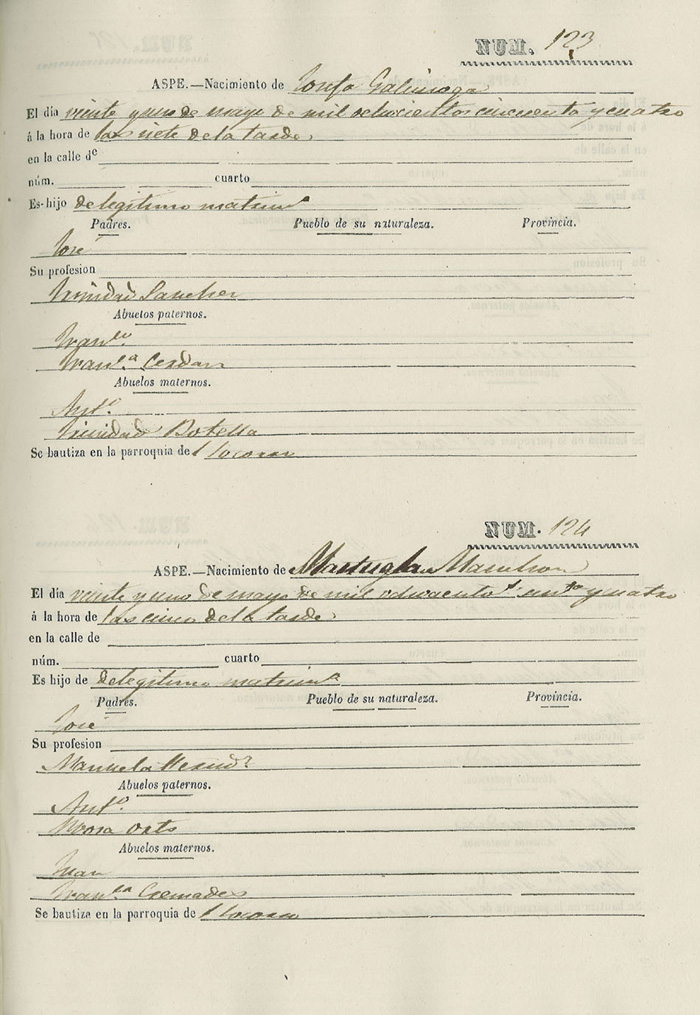 NUM. 123
ASPE.—Nacimiento de Josefa Galinsoga
El día veinte y uno de mayo de mil ochocientos cincuenta y cuatro
á la hora de las siete de la tarde
en la calle de
núm. cuarto
Es hijo de legitimo matrim.º
Padres. Pueblo de su naturaleza. Provincia.
José
Su profesion
Trinidad Sanchez
Abuelos paternos.
Fran.co
Fran.ca Cerdan
Abuelos maternos.
Ant.º
Trinidad Botella
Se bautiza en la parroquia del Socorro
NUM. 124
ASPE.—Nacimiento de
El día veinte y uno de mayo de mil y cuatro
á la hora de las cinco de la tarde
en la calle de
núm. cuarto
Es hijo de de legitimo matrim.º
Padres. Pueblo de su naturaleza. Provincia.
José
Su profesion
Manuela
Abuelos paternos.
Ant.º
Rosa Orts
Abuelos maternos.
Juan
Fran.ca Cremades
Se bautiza en la parroquia de l Socorro